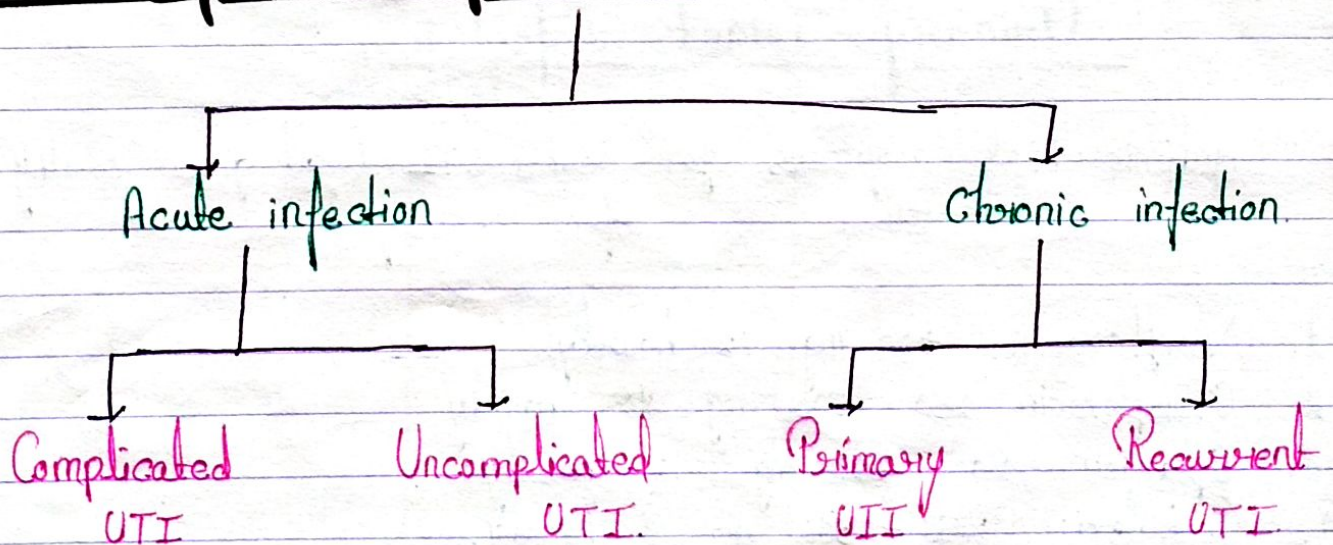 Acute infection
Chronic infection.
Complicated
UTI
Uncomplicated
UTI.
Primary
UII
Recurrent
UTI